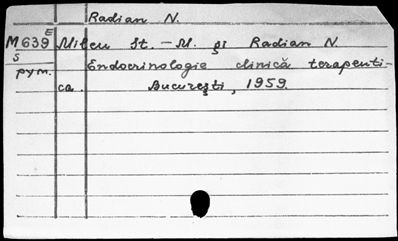 Radian N.
E
M639 Milcu St.-M. și Radian N.
S
Endocrinologie clinică terapeuti-
рум.
ca. București, 1959.